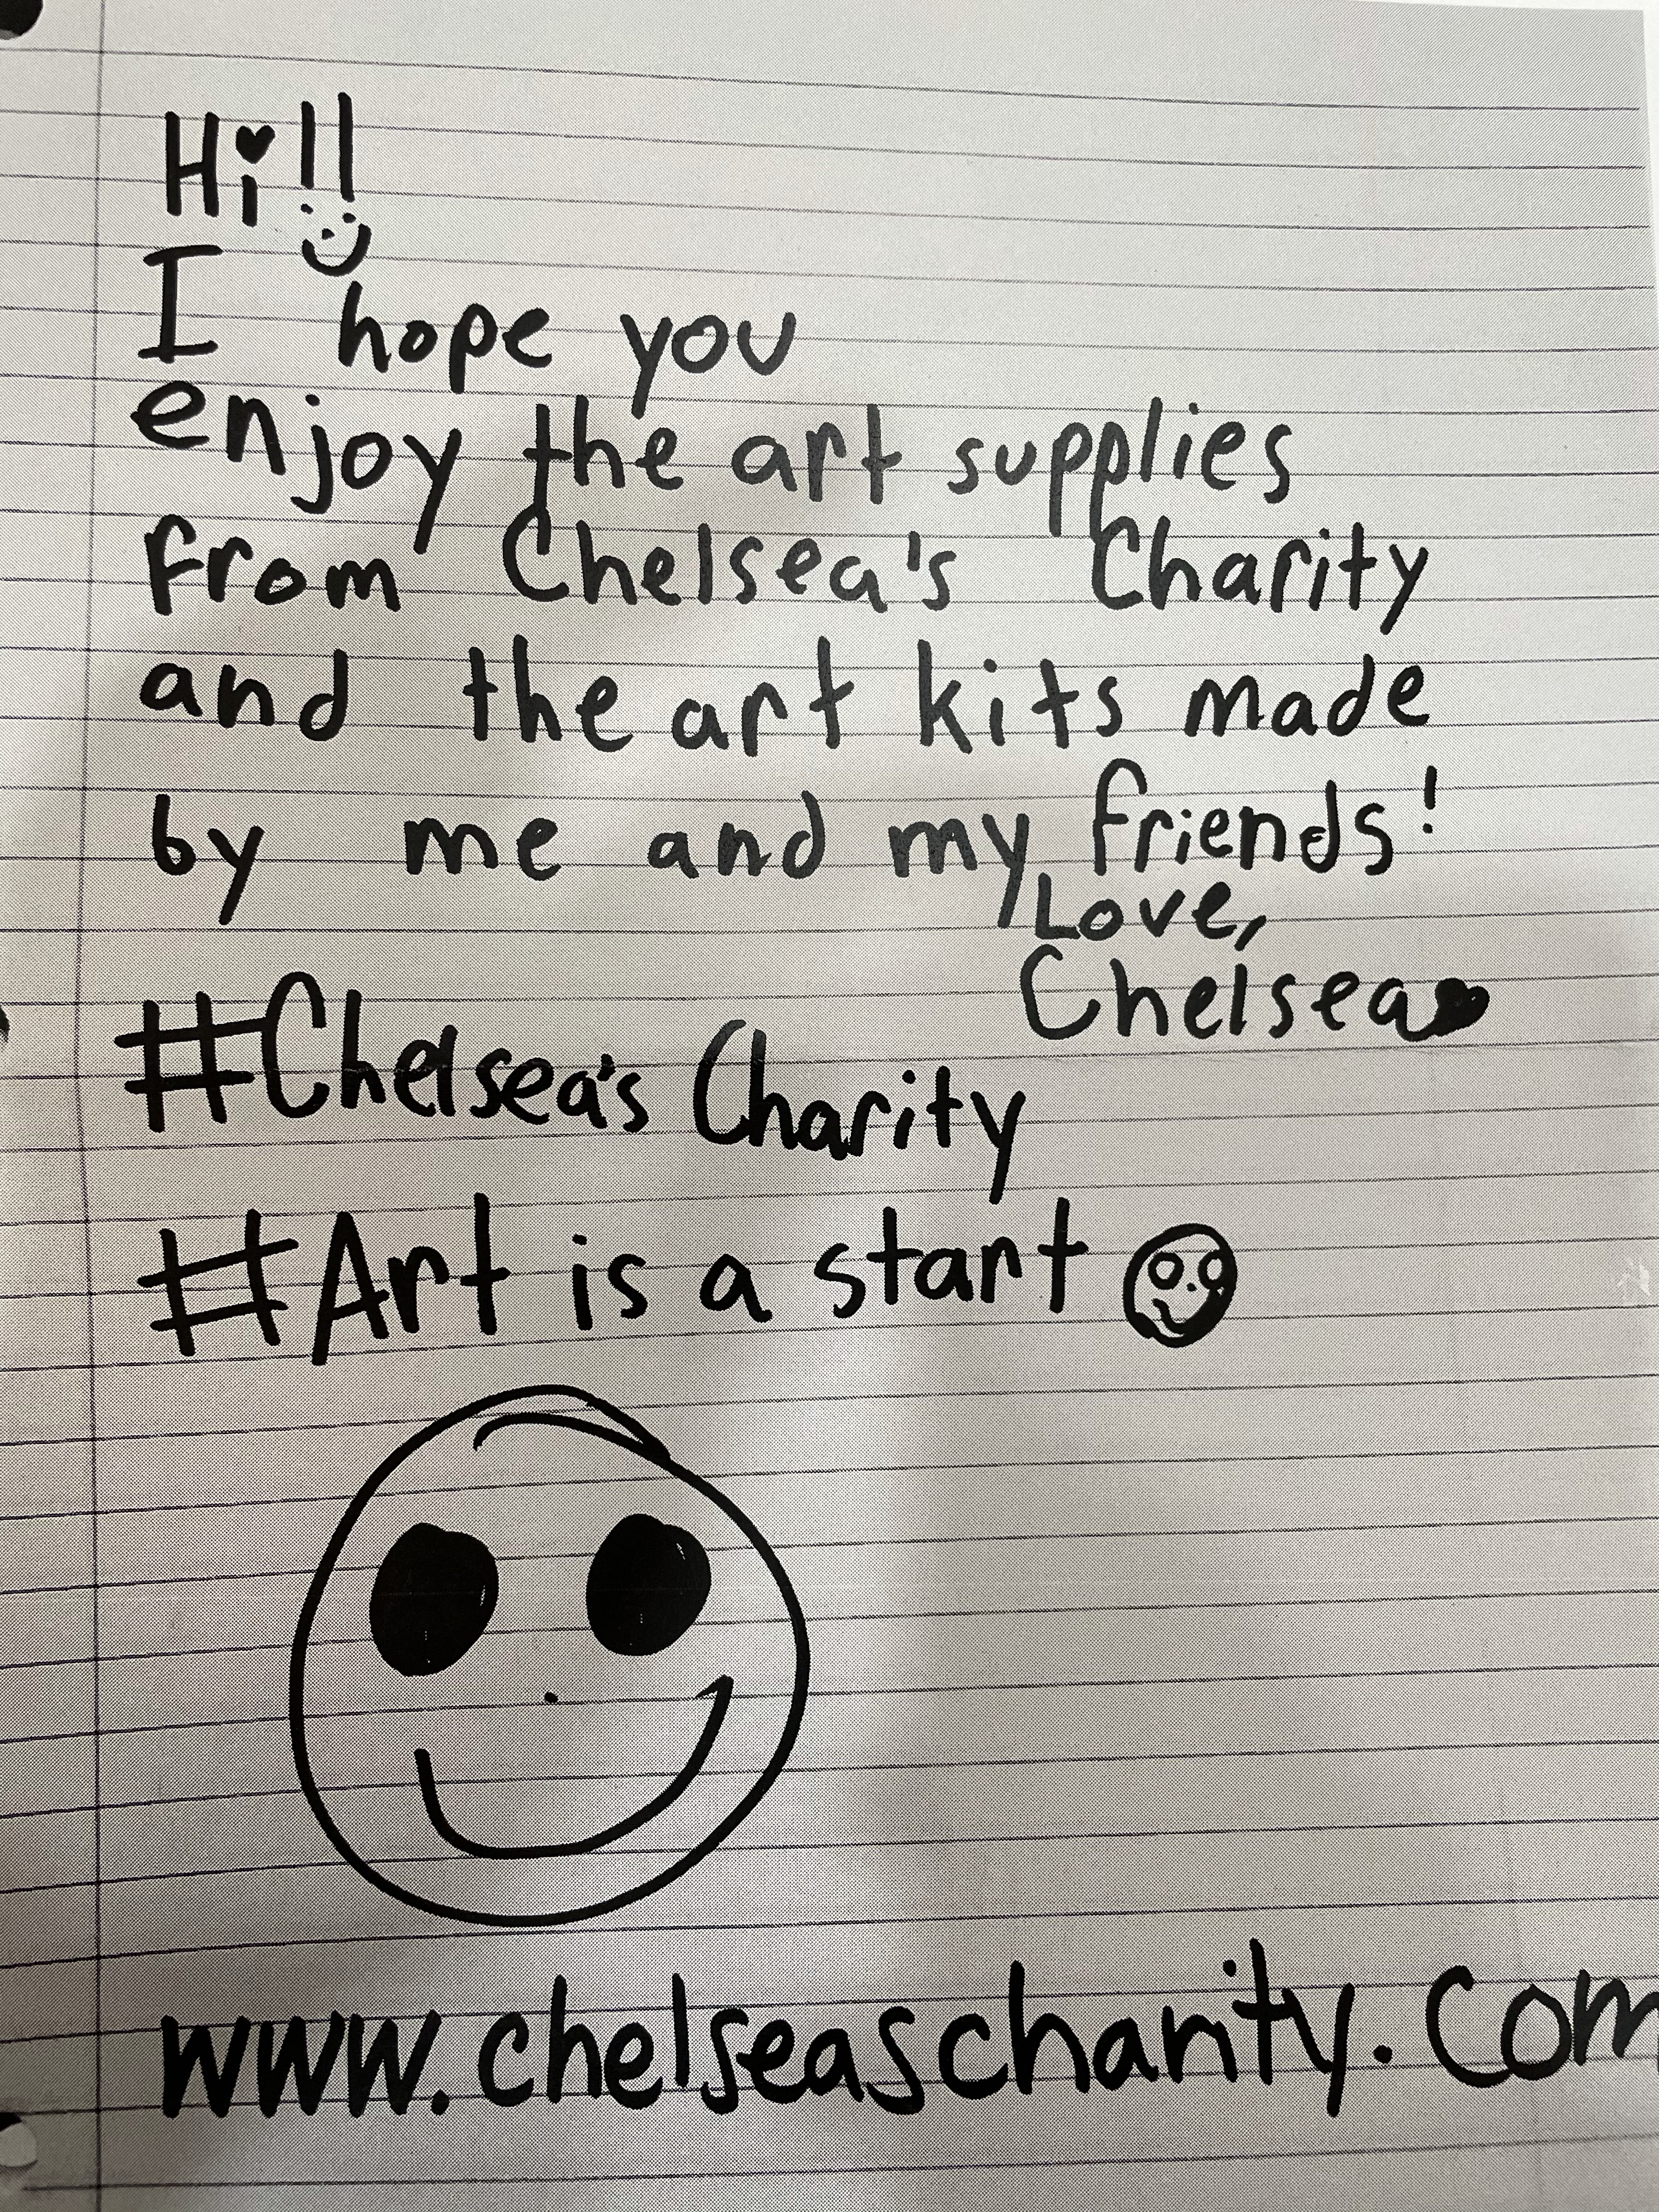 Hi!!
I hope you
enjoy the art supplies
from Chelsea's Charity
and the art kits made
by me and my friends!
Love,
Chelsea
#Chelsea's Charity
#Art is a start
www.chelseascharity.com